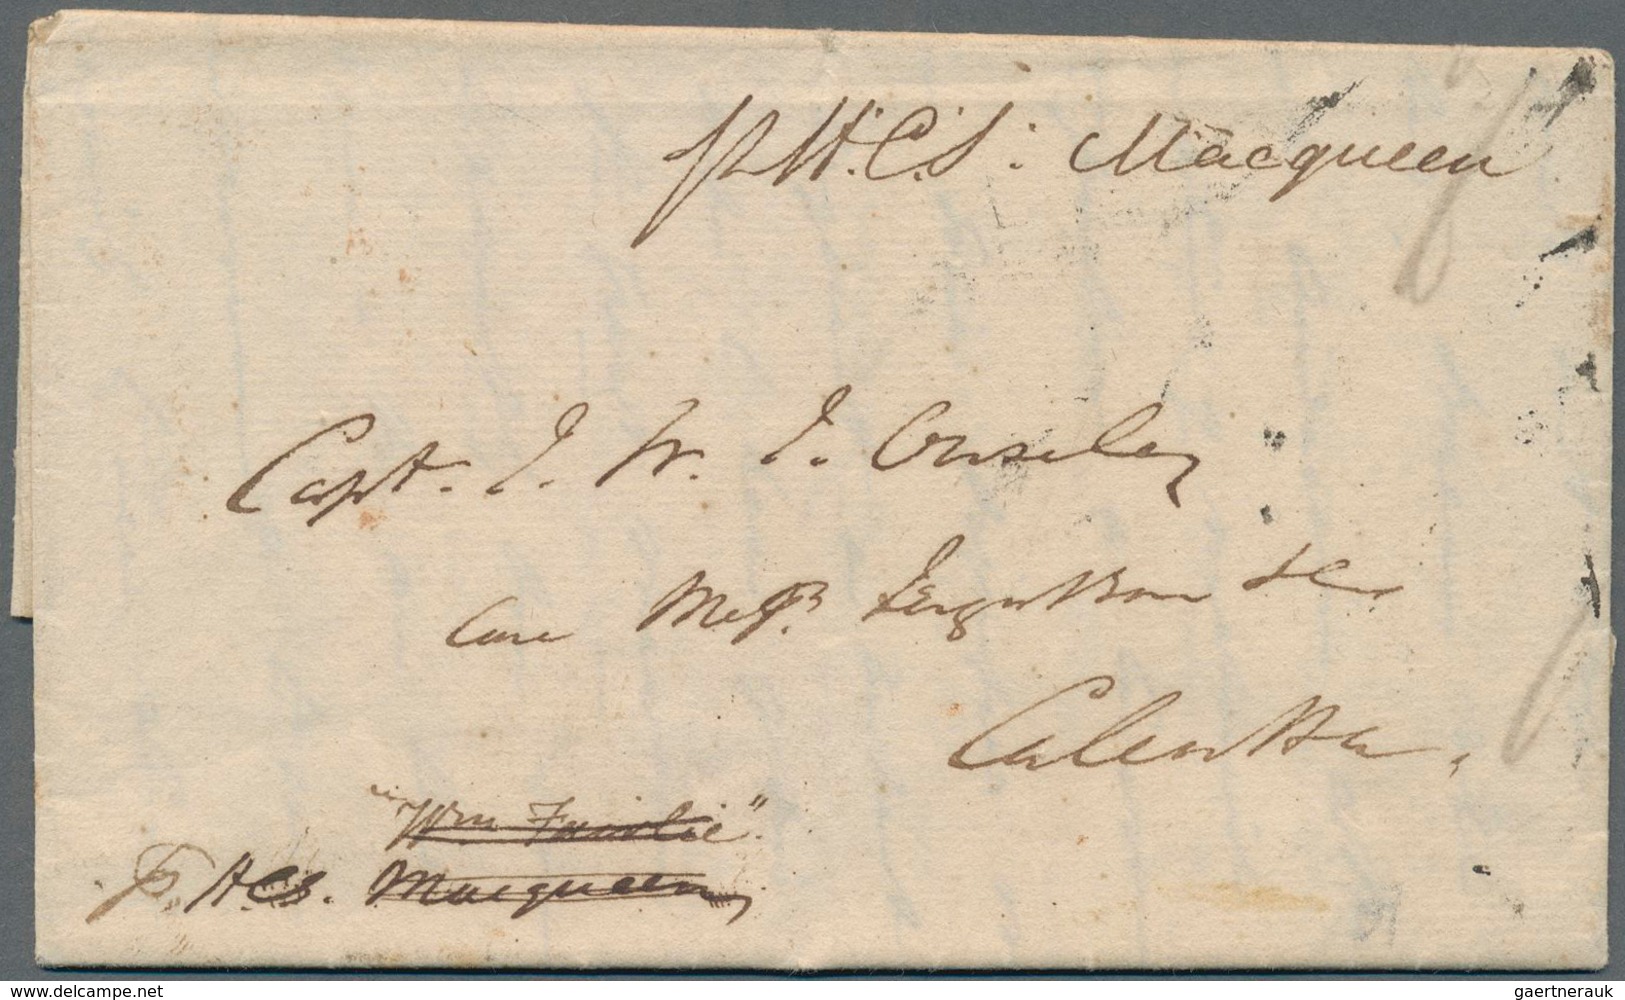 p H.C.S: Macqueen
Capt. J. W. J. Ouseley
Care Messrs. Fergusson &c.
Calcutta.
"Wm Fairlie"
p. HCS. Macqueen
www.delcampe.net
gaertnerauk